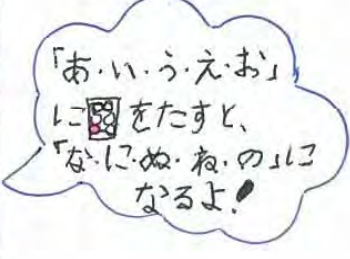 「あ・い・う・え・お」
に をたすと、
「な・に・ぬ・ね・の」に
なるよ!